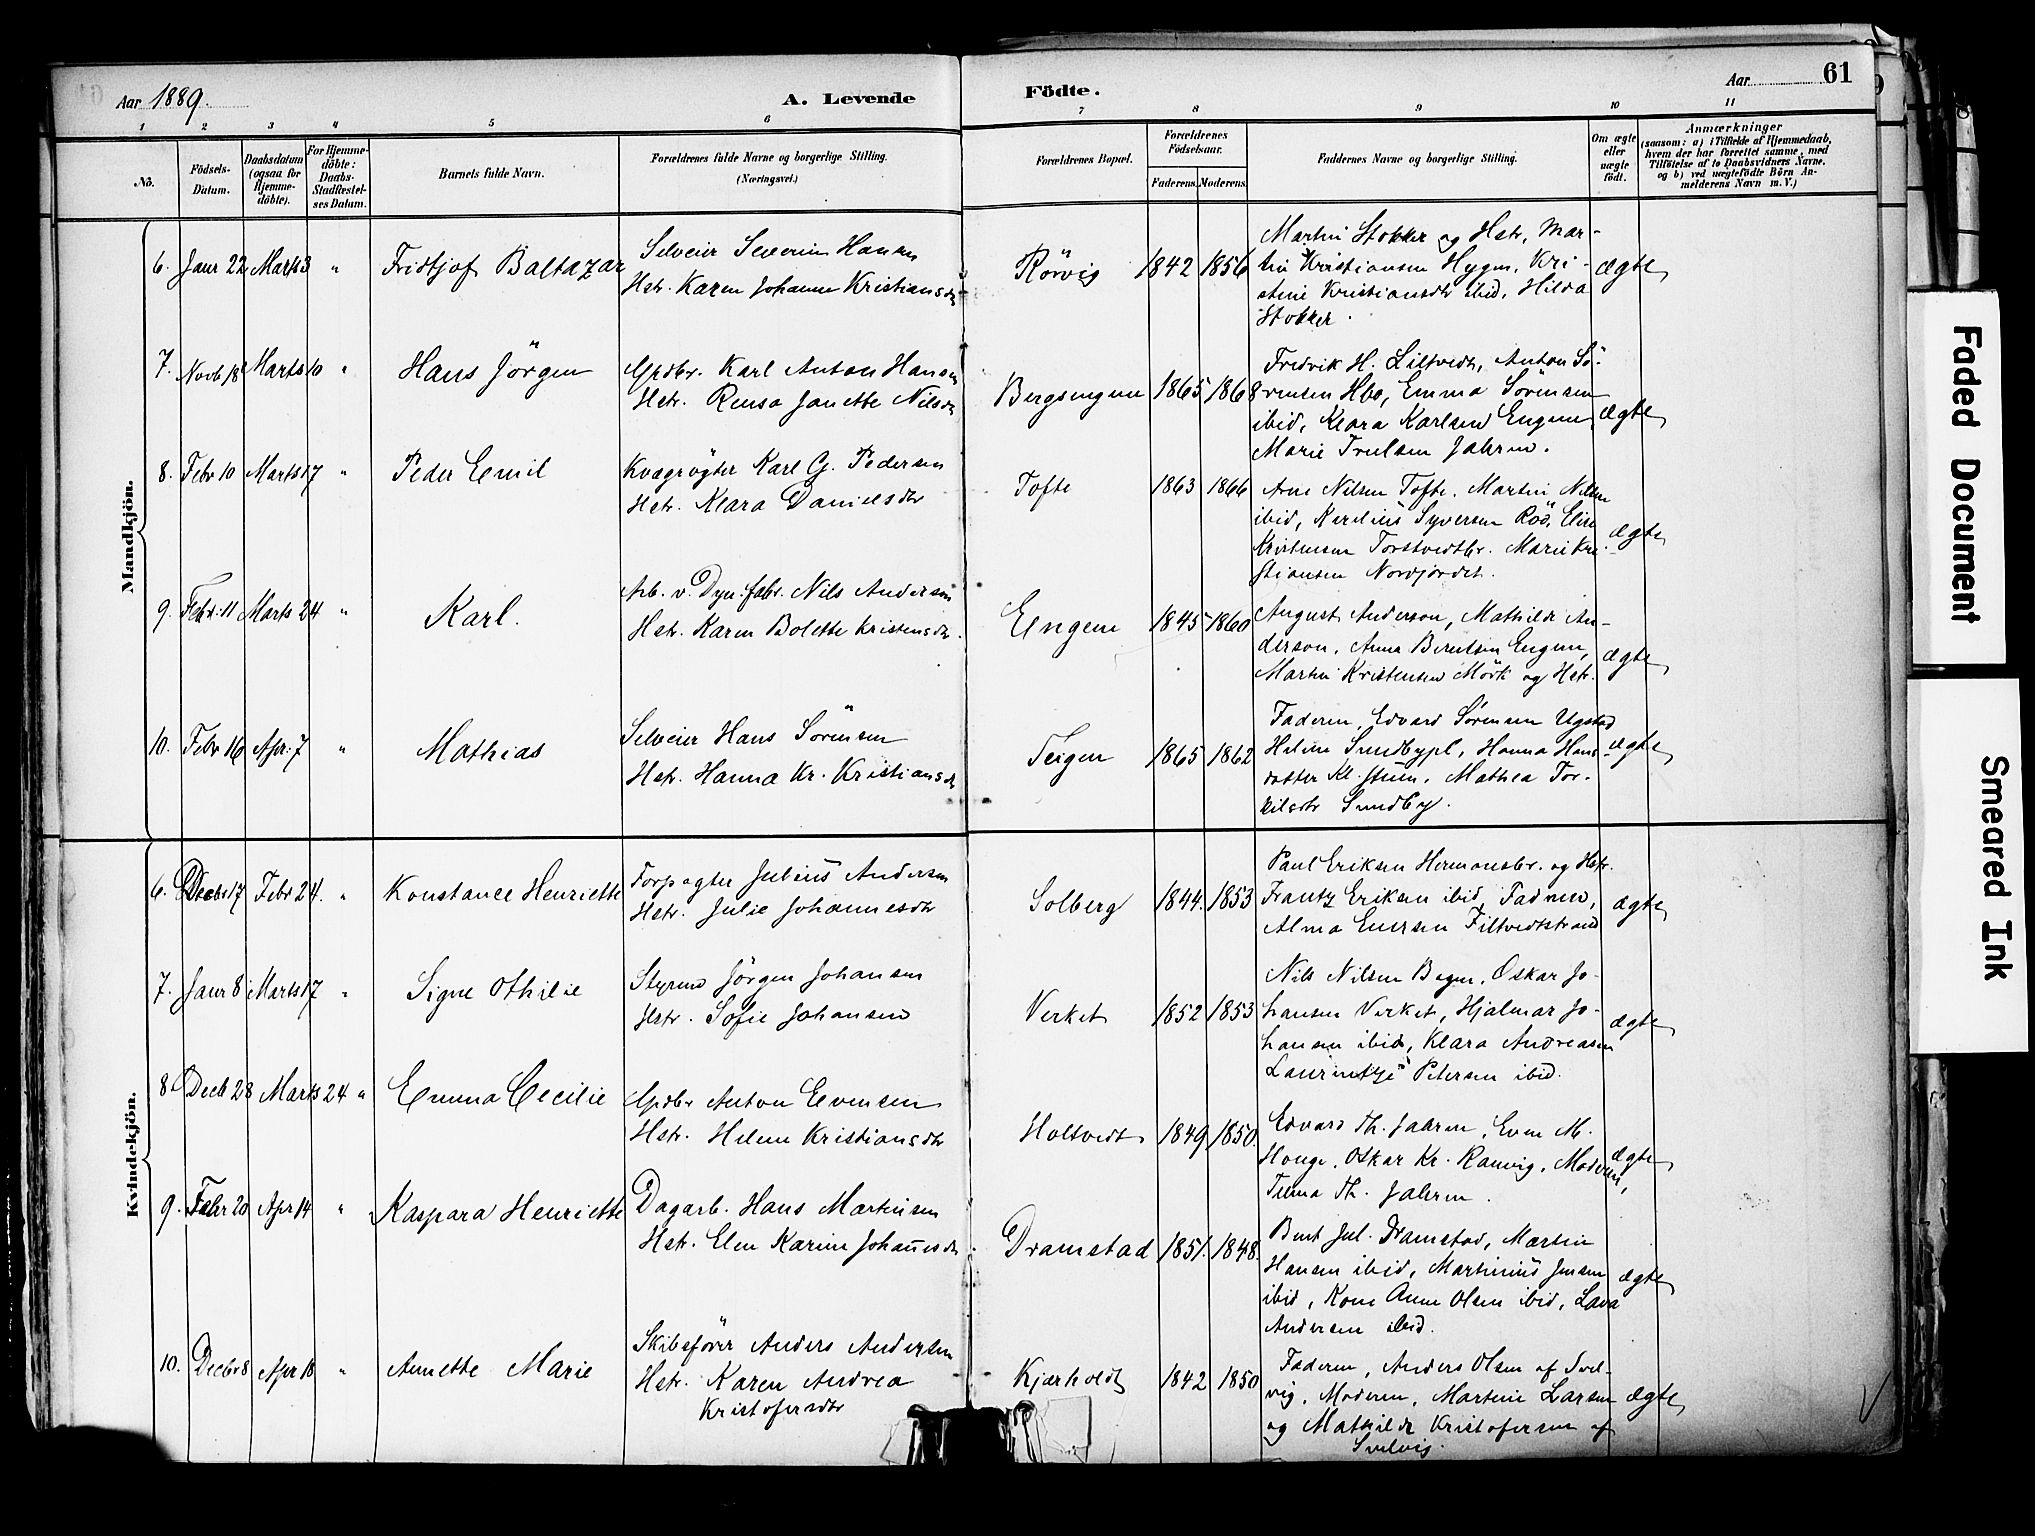 Aar 1889.
A. Levende
Födte.
Aar
61
1
2
3
4
5
6
7
8
9
10
11
No.
Födsels-
Datum.
Daabsdatum
(ogsaa for
Hjemme-
döbte).
For Hjemme-
döbte:
Daabs-
Stadfæstel-
ses Datum.
Barnets fulde Navn.
Forældrenes fulde Navne og borgerlige Stilling.
(Næringsvei.)
Forældrenes Bopæl.
Forældrenes
Födselsaar.
Faderens.
Moderens.
Faddernes Navne og borgerlige Stilling.
Om ægte
eller
uægte
födt.
Anmærkninger
(saasom: a) i Tilfælde af Hjemmedaab,
hvem der har forrettet samme, med
Tilföielse af to Daabsvidners Navne.
og b) ved uægtefödte Börn An-
melderens Navn m. V.)
Mandkjön.
6. Janr 22 Marts 3 " Fridtjof Baltazar
Selveier Severin Hansen
Hstr. Karen Johanne Kristiansdr
Rørvig 1842 1856
Martin Stokker og Hstr, Mar-
tin Kristiansen Hygen, Kri-
stine Kristiansdtr ibid, Hilda
Stokker.
ægte
7. Novb 18 Marts 10 " Hans Jörgen
Gprdbr. Karl Anton Hansen
Hstr. Rensa Janette Nilsdr
Bergsengene 1865 1868
Fredrik H. Liltvedt, Anton Sö-
rensen Hbo, Emma Sorensen
ibid, Klara Karlsen Engene
Marie Trulsen Jahren.
ægte
8. Febr 10 Marts 17 " Peder Emil
Kvægrögter Karl G. Pedersen
Hstr. Klara Danielsdtr
Tofte 1863 1866
Arne Nilsen Tofte. Martin Nilsen
ibid, Karelius Syversen Röd, Elise
Kristensen Torstvedtbr. Marie Kri-
stiansen Nordjordet.
ægte
9. Febr. 11 Marts 24 " Karl.
Arb. v. Dyn. fabr. Nils Andersen
Hstr. Karen Bolette Kristensdtr.
Engene 1845 1860
August Anderson, Mathilde An-
derson, Anna Berntsen Engene,
Martin Kristensen Mörk og Hstr.
ægte
10. Febr 16 Apr. 7 " Mathias
Selveier Hans Sörensen
Hstr. Hanna Kr. Kristiansdr
Teigen 1865 1862
Faderen, Edvard Sörensen Ugstad
Helene Sundbypl, Hanna Hans-
datter Kl. , Mathea Tor-
kilsdtr Sundby.
ægte
Kvindekjön.
6. Decbr 17 Febr 24. " Konstance Henriette
Forpagter Julius Andersen
Hstr. Julie Johannesdtr
Solberg 1844. 1853
Paul Eriksen Hermansbr. og Hstr.
Frantz Eriksen ibid, Faderen,
Alma Enersen Filtvedtstrand
ægte
7. Janr 8 Marts 17 " Signe Othilie
Styrmd Jörgen Johansen
Hstr. Sofie Johansen
Verket 1852 1853
Nils Nilsen Bogen, Oskar Jo-
hansen Verket, Hjalmar Jo-
hansen ibid, Klara Andreasen
Laurentze Petersen ibid.
ægte
8. Decb 28 Marts 24 " Emma Cecilie
Gprdbr Anton Evensen
Hstr. Helene Kristiansdtr
Holtvedt 1849 1850
Edvard Th. Jahren, Even M.
Houge, Oskar Kr. Ranvig, Moderen,
Th. Jahren.
ægte
9. Febr 20 Apr 14 " Kaspara Henriette
Dagarb. Hans Martinsen
Hstr. Elen Karine Johannesdr.
Dramstad 1851. 1848.
Bent Jul. Dramstad, Martin
Hansen ibid, Martinius Jensen
ibid, Karen Anne Olsen ibid, Lava
Andersen ibid.
ægte
10. Decbr 8 Apr 18 " Annette Marie
Skibsförer Anders Andersen
Hstr. Karen Andrea
Kristofersdtr
Kjærholdt 1842 1850
Faderen, Anders Olsen af Svel-
vig, Moderen, Martine Larsen
og Mathilde Kristofersen af
Svelvig.
ægte
Faded Document
Smeared Ink